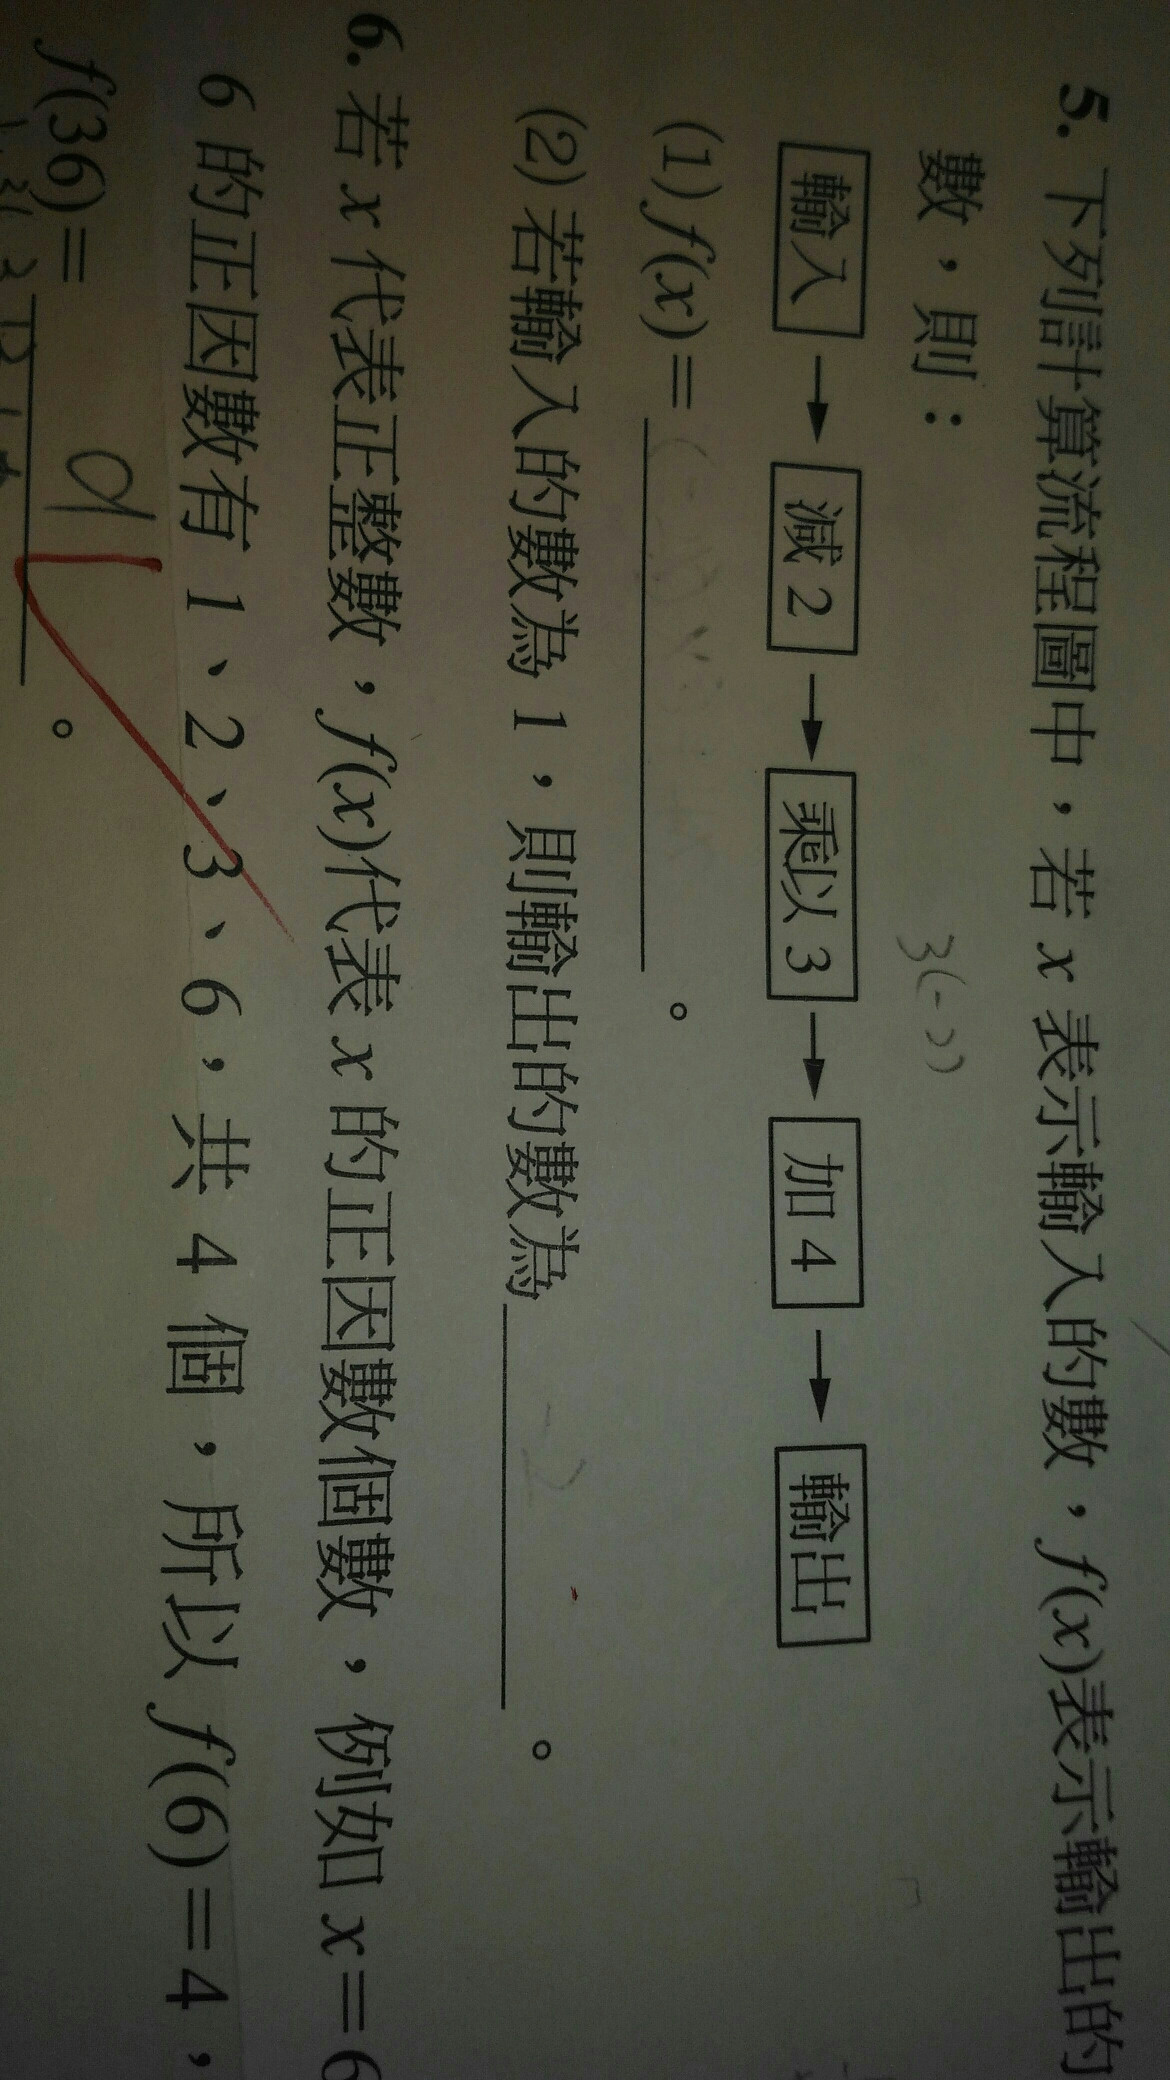 5. 下列計算流程圖中，若 x 表示輸入的數，f(x)表示輸出的
數，則：
3(-2)
輸入 → 減 2 → 乘以 3 → 加 4 → 輸出
(1) f(x)= 。
(2) 若輸入的數為 1，則輸出的數為 。
6. 若 x 代表正整數，f(x)代表 x 的正因數個數，例如 x=6
6 的正因數有 1、2、3、6，共 4 個，所以 f(6)=4，
f(36)= 9 。